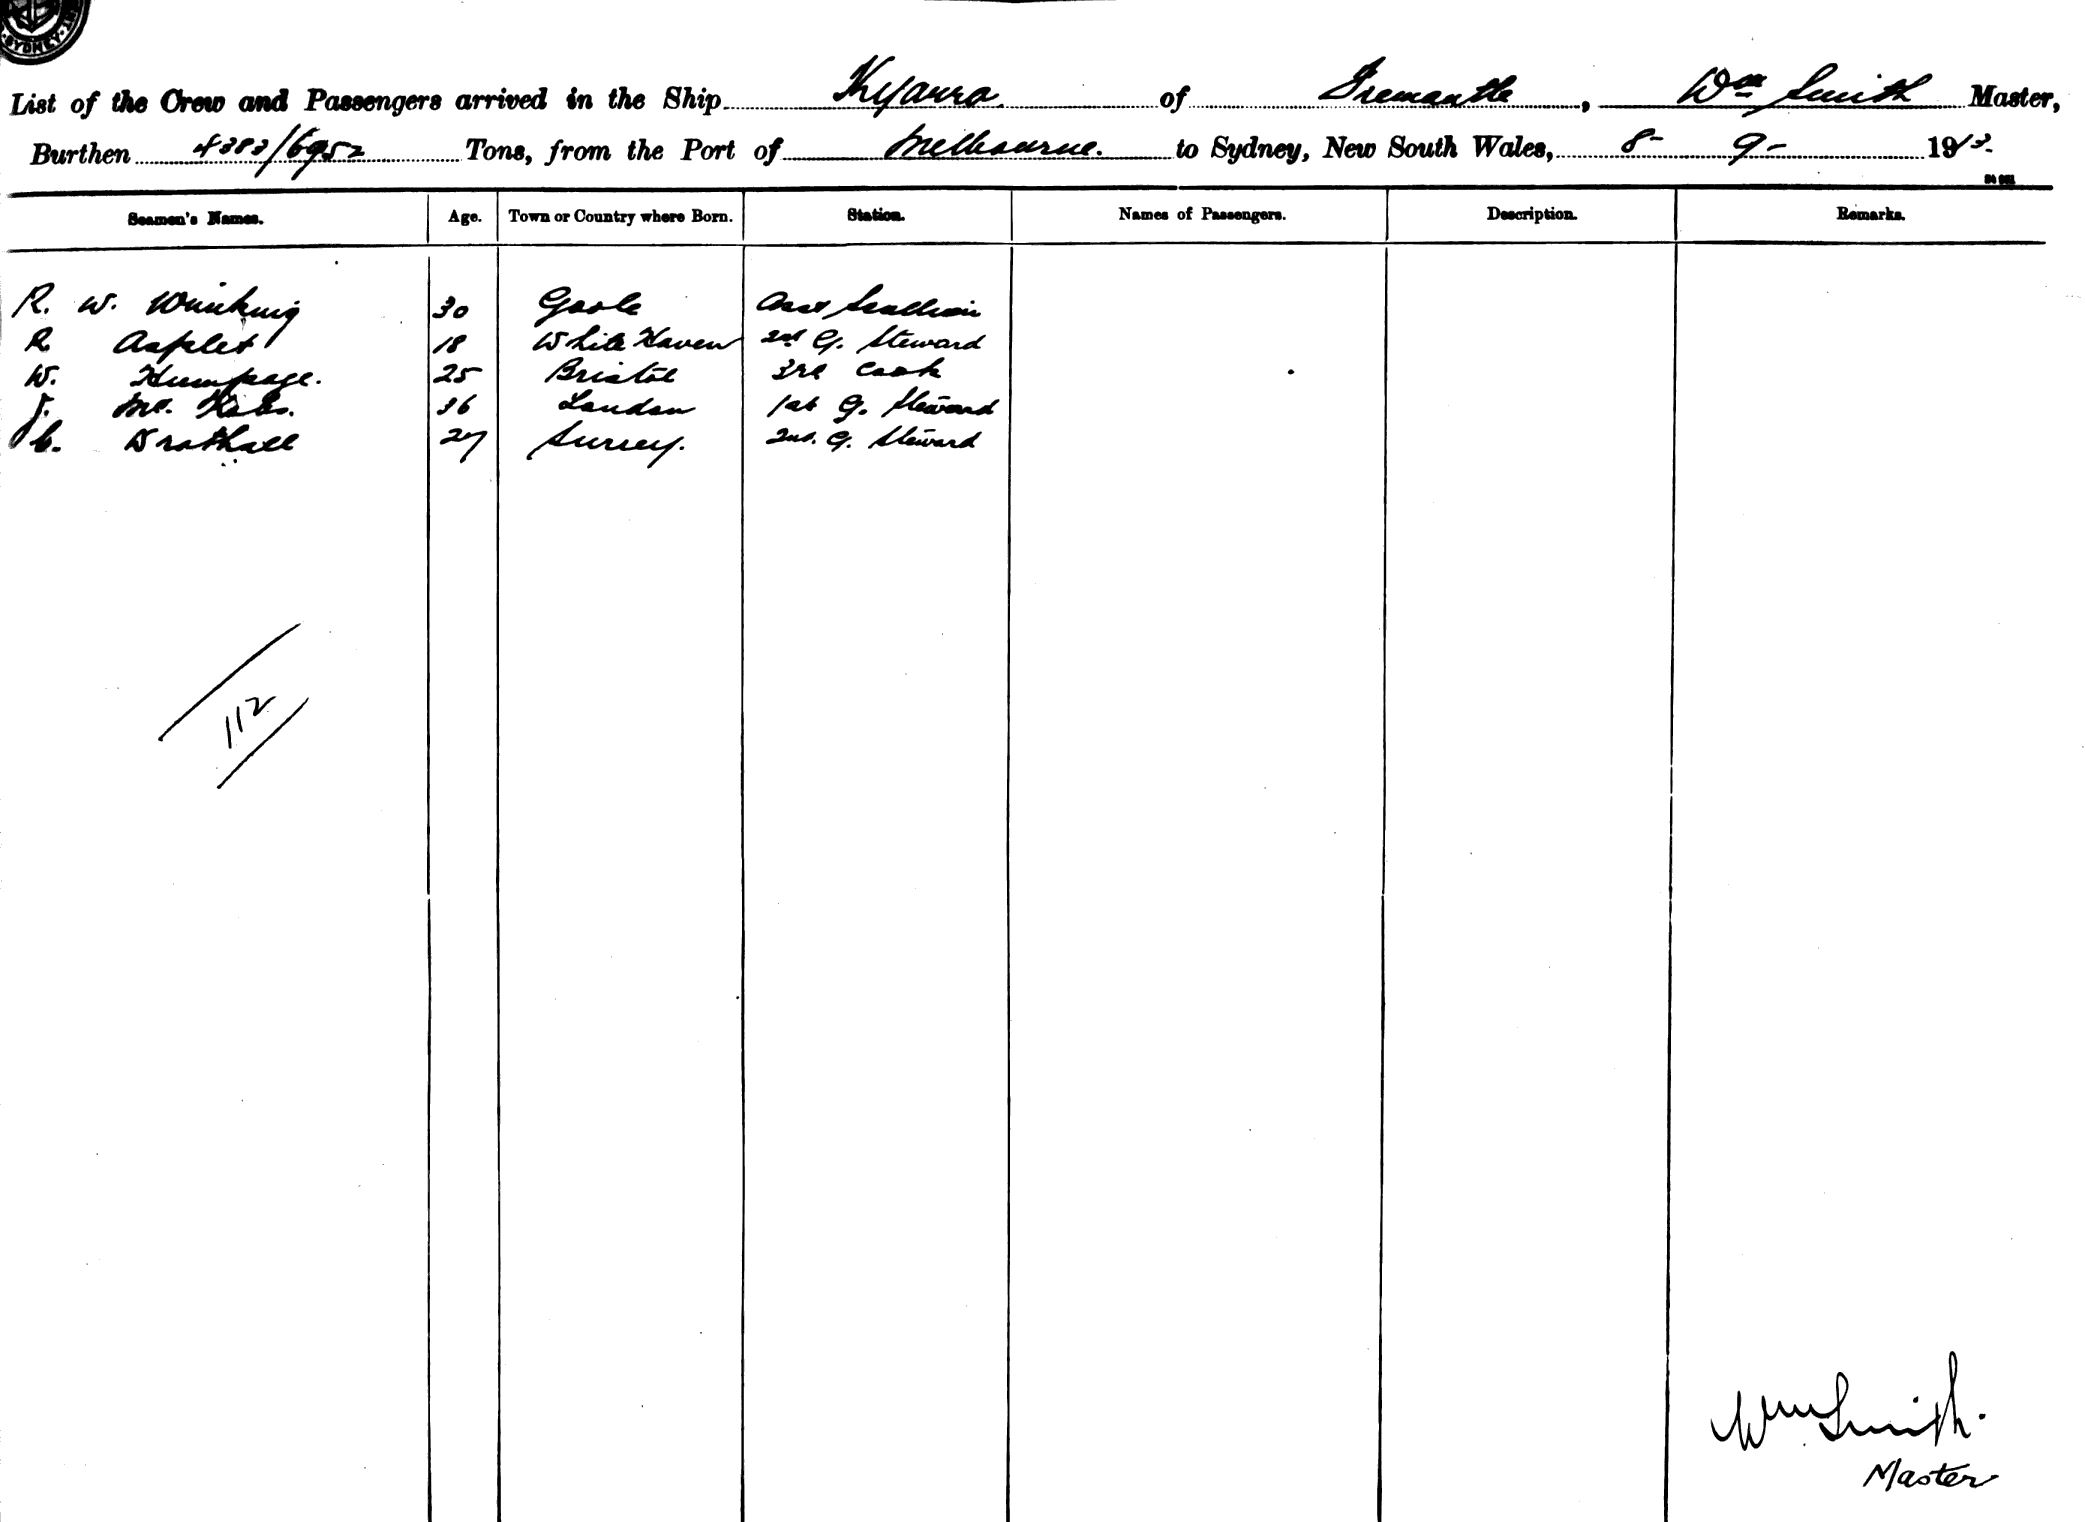 SYDNEY
List of the Crew and Passengers arrived in the Ship Kyarra of Fremantle, Wm Smith Master,
Burthen 4383/6952 Tons, from the Port of Melbourne. to Sydney, New South Wales, 8- 9- 1913.
Seamen's Names. Age. Town or Country where Born. Station. Names of Passengers. Description. Remarks.
R. W. 30 Goole Asst Scullion
R Asplet 18 White Haven 2nd G. Steward
W. Humpage. 25 Bristol 3rd Cook
J. Mc. 36 London 1st G. Steward
C. Brathall 27 Surrey. 2nd. G. Steward
112
Wm Smith.
Master